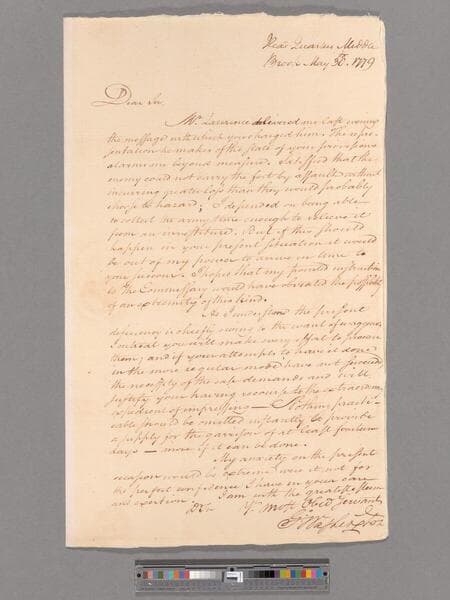 Head Quarters Middle
Brook May 30. 1779
Dear Sir
Mr. Laurence delivered me last evening
the message with which you charged him. The repre-
sentation he makes of the state of your provisions
alarms me beyond measure. Satisfied that the
enemy could not carry the fort by assault without
incurring greater loss than they would probably
chose to hazard; I depended on being able
to collect the army time enough to relieve it
from an investiture. But if this should
happen in your present situation it would
be out of my power to arrive in time to
your succour. I hoped that my pointed instructions
to the Commissary would have obviated the possibility
of an extremity of this kind.
As I understand the present
deficiency is chiefly owing to the want of waggons
I intreat you will make every effort to procure
them; and if your attempts to have it done
in the more regular mode have not succeeded
the necessity of the case demands and will
justify your having recourse to the extraordinary
expedient of impressing — Nothing practi-
cable should be omitted instantly to provide
a supply for the garrison of at least fourteen
days — more if it can be done.
My anxiety on the present
occasion would be extreme were it not for
the perfect confidence I have in your care
and exertion. I am with the greatest esteem
Dr Sir Yr. most Obed Servant
Go Washington